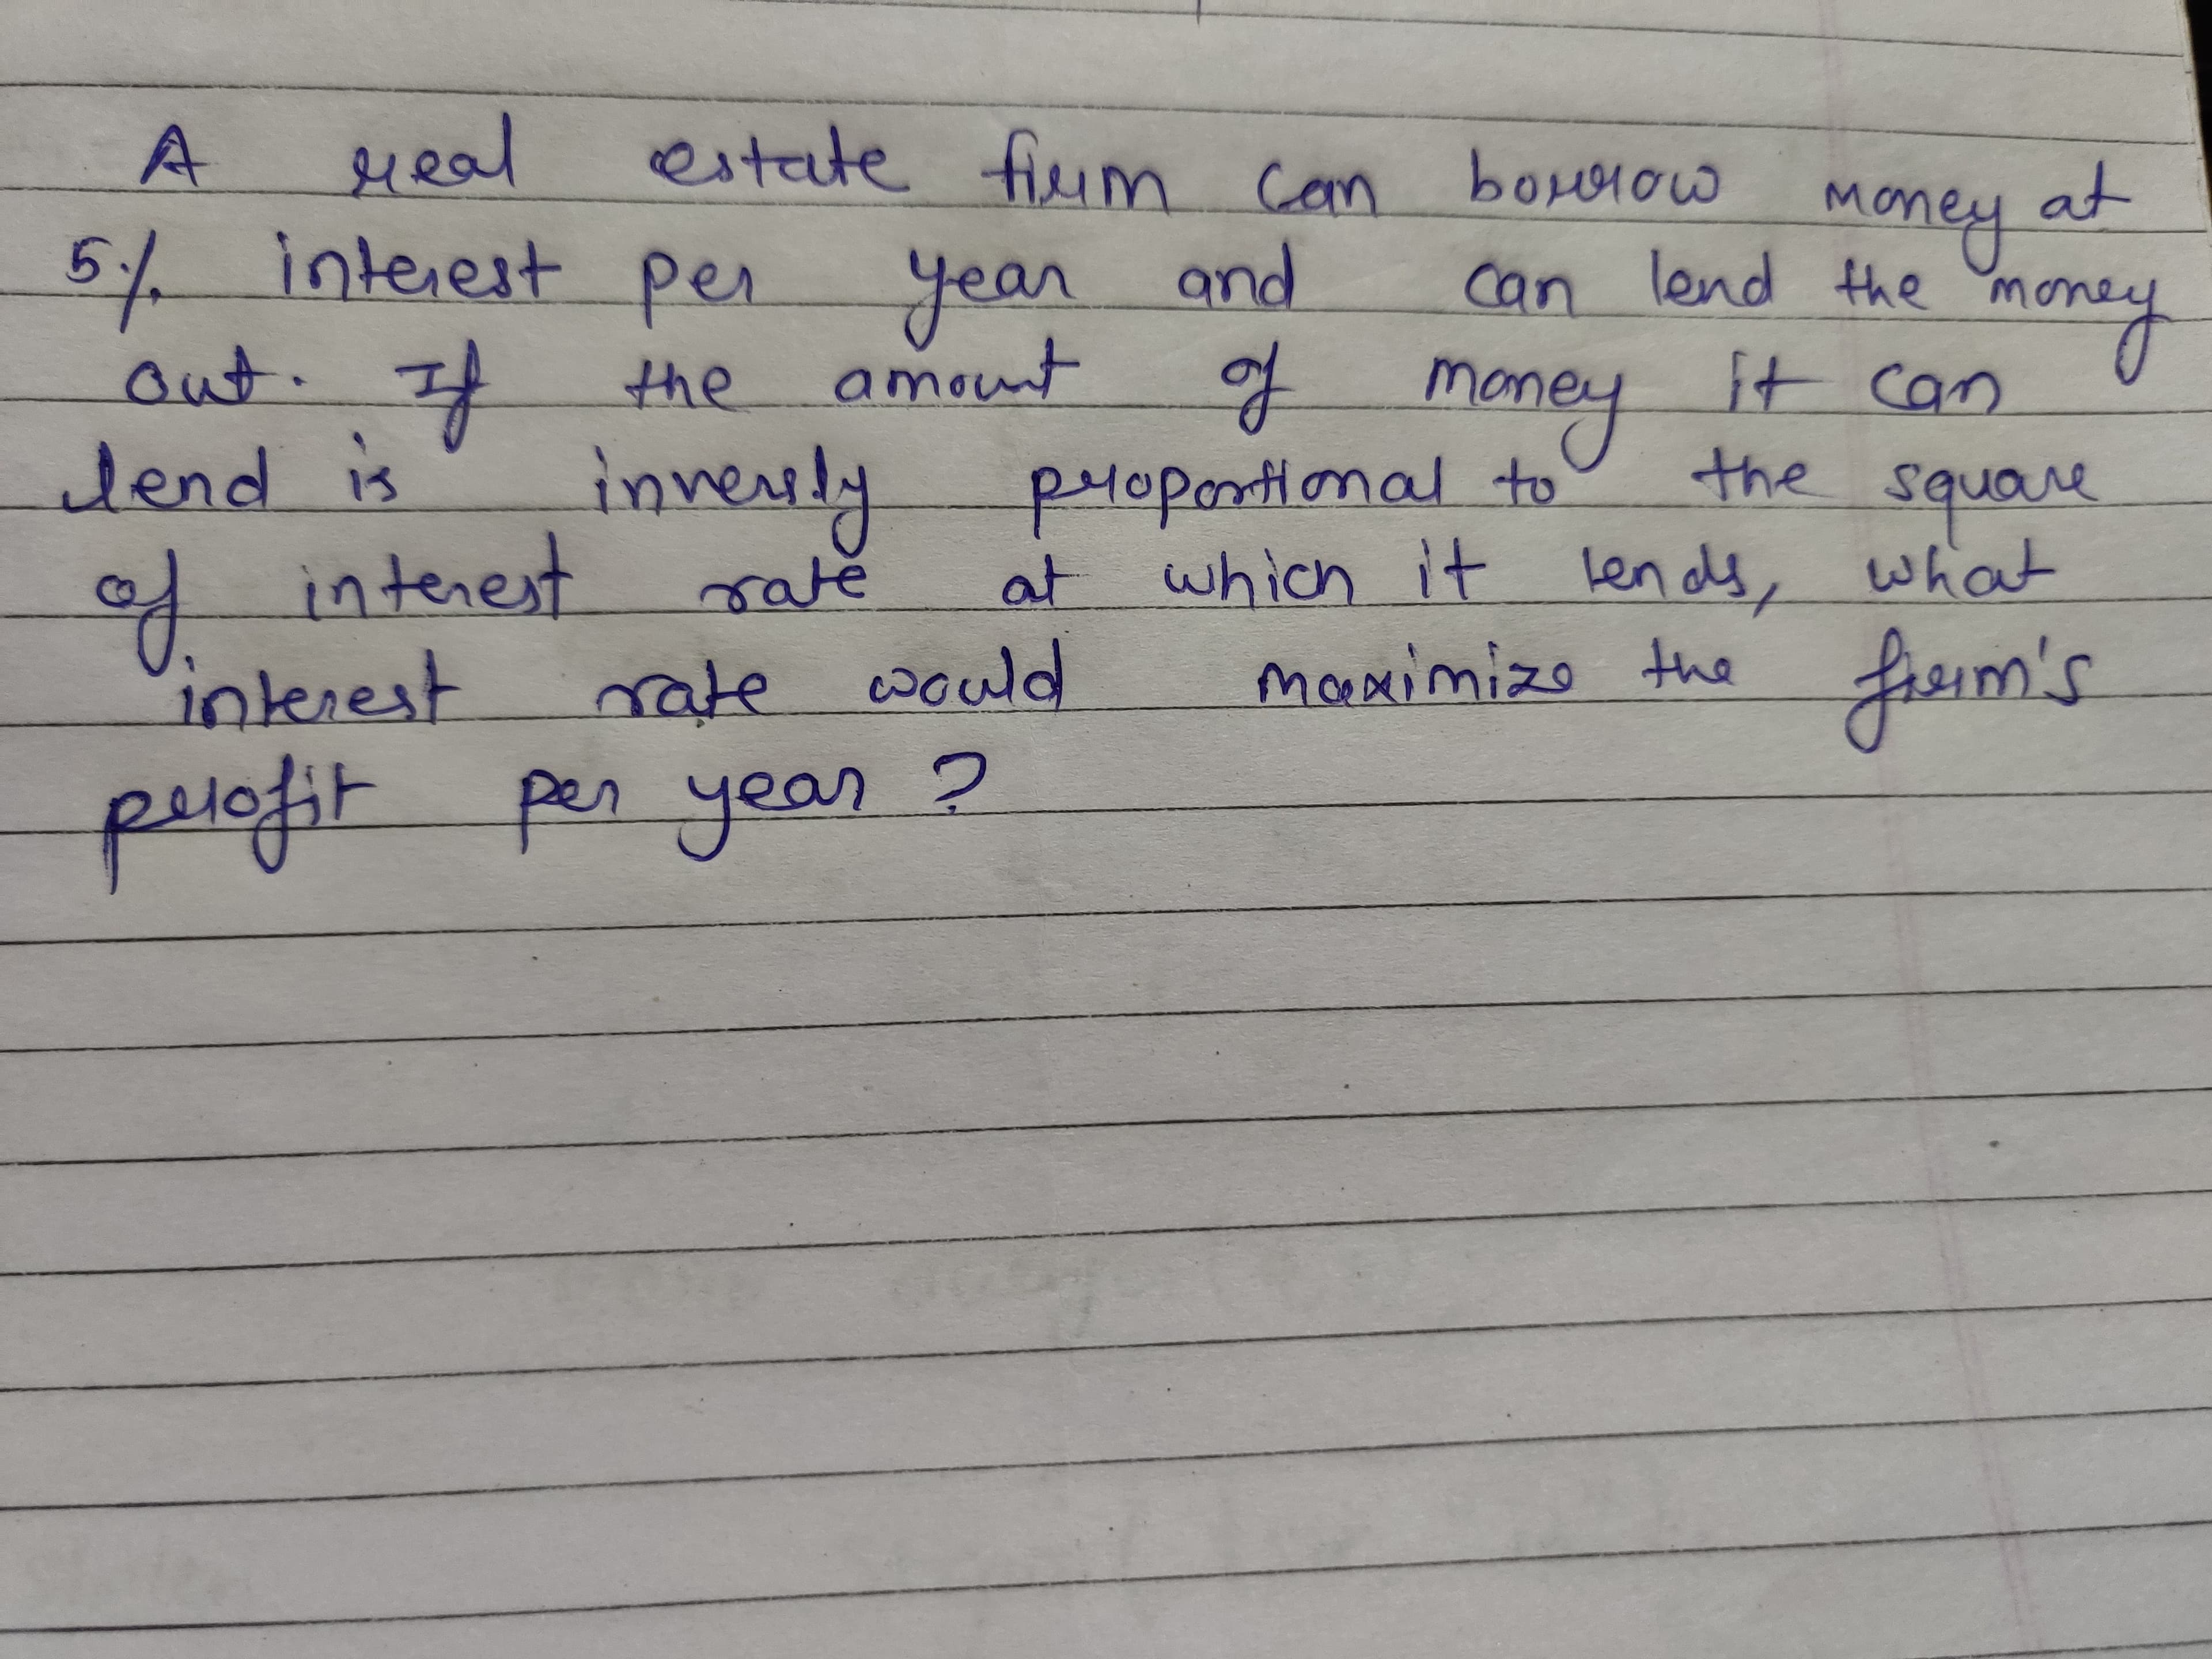 A real estate firm can borrow money at
5% interest per year and can lend the money
out. If the amount of money it can
lend is inversly proportional to the square
of interest rate at which it lends, what
interest rate would maximize the firm's
profit per year?